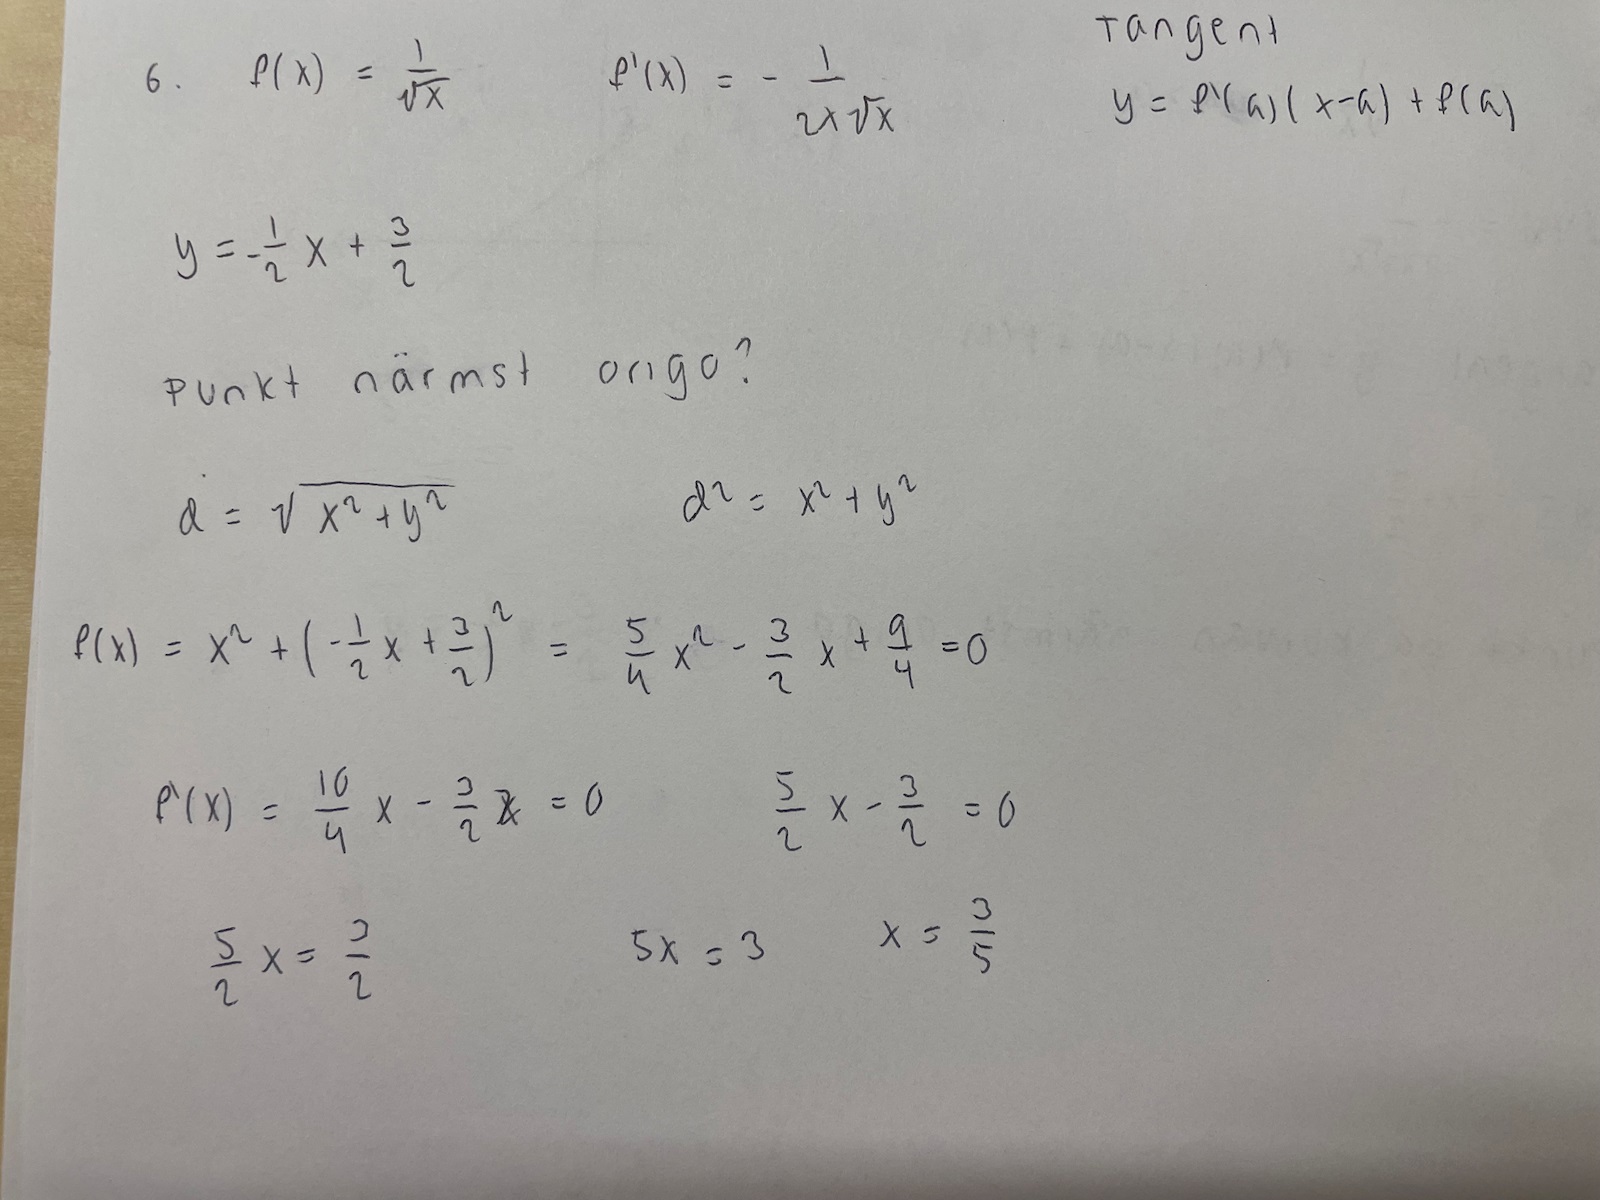 Tangent
6. f(x) = 1/√x f'(x) = - 1/(2x√x) y = f'(a)(x-a) + f(a)
y = -1/2 x + 3/2
Punkt närmst origo?
d = √(x² + y²) d² = x² + y²
f(x) = x² + (-1/2 x + 3/2)² = 5/4 x² - 3/2 x + 9/4 = 0
f'(x) = 10/4 x - 3/2 = 0 5/2 x - 3/2 = 0
5/2 x = 3/2 5x = 3 x = 3/5